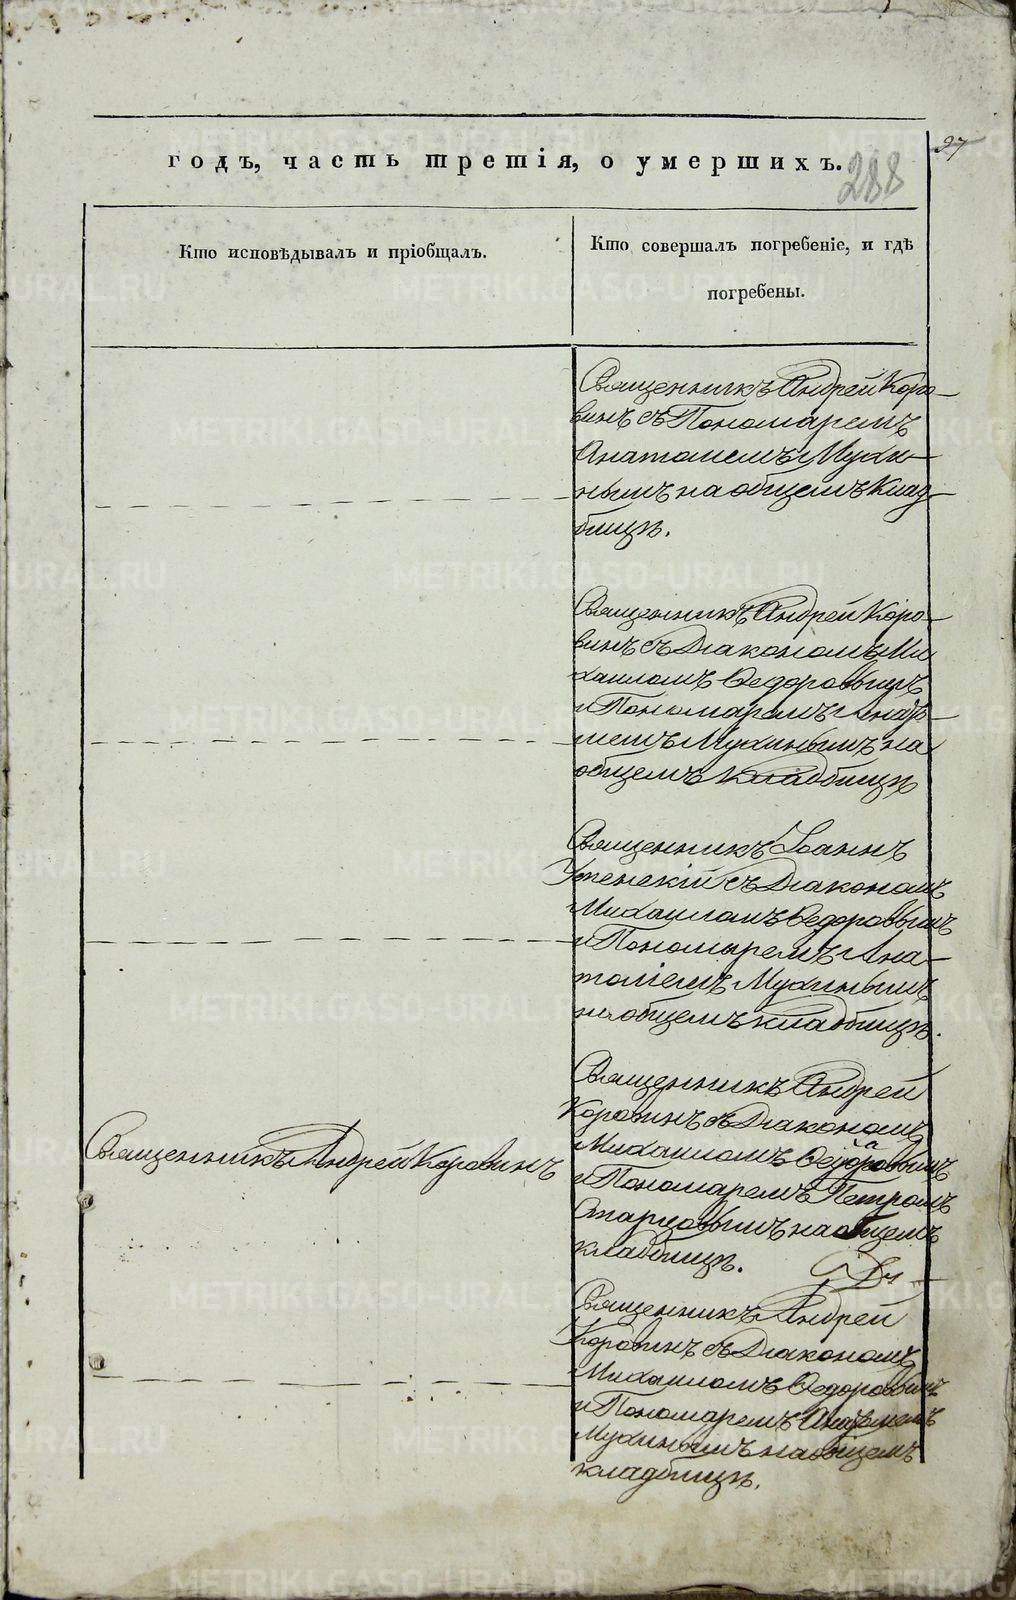 годъ, часть третія, о умершихъ.
27
288
Кто исповѣдывалъ и пріобщалъ.
Кто совершалъ погребеніе, и гдѣ
погребены.
Священникъ Андрей Коро-
винъ съ Пономаремъ
Анатолиемъ Мухи-
нымъ на общемъ Клад-
бищѣ.
Священникъ Андрей Коро-
винъ съ Діакономъ Ми
хаиломъ Ѳедоровымъ
и Пономаремъ
Мухинымъ на
общемъ Кладбищѣ
Священникъ Іоаннъ
Успенскій съ Діакономъ
Михаиломъ Ѳедоровымъ
и Пономаремъ Ана-
толіемъ Мухинымъ
на общемъ кладбищѣ.
Священникъ Андрей
Коровинъ съ Діакономъ
Священникъ Андрей Коровинъ
Михаиломъ Ѳедоровымъ
и Пономаремъ Петромъ
Старцовымъ на общемъ
кладбищѣ.
Священникъ Андрей
Коровинъ съ Діакономъ
Михаиломъ Ѳедоровымъ
и Пономаремъ
Мухинымъ на общемъ
кладбищѣ.
METRIKI.GASO-URAL.RU